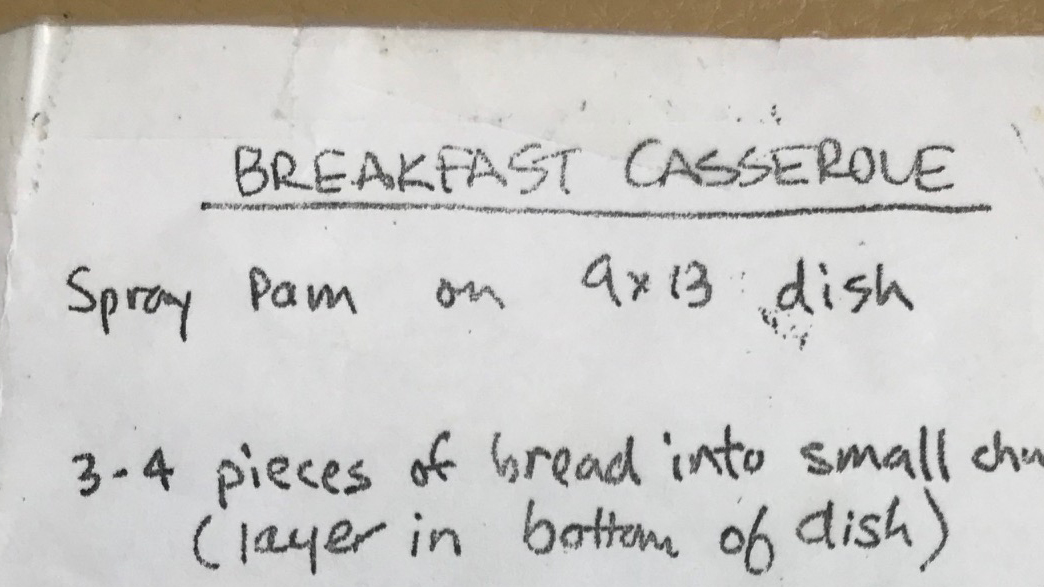 BREAKFAST CASSEROLE
Spray Pam on 9x13 dish
3-4 pieces of bread into small
(layer in bottom of dish)